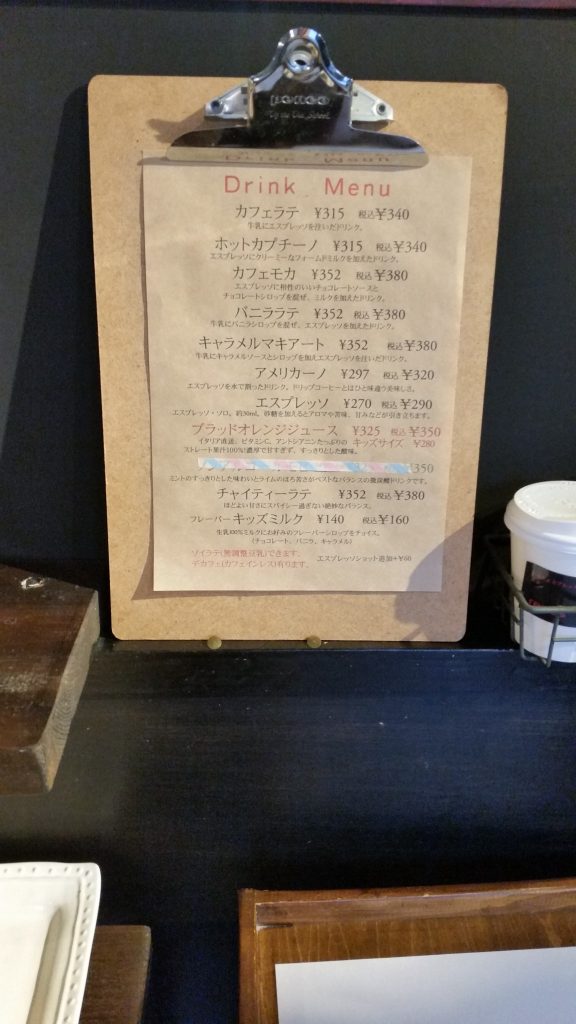 penco
Drink Menu
カフェラテ ¥315 税込¥340
牛乳にエスプレッソを注いだドリンク。
ホットカプチーノ ¥315 税込¥340
エスプレッソにクリーミーなフォームドミルクを加えたドリンク。
カフェモカ ¥352 税込¥380
エスプレッソに相性のいいチョコレートソースと
チョコレートシロップを混ぜ、ミルクを加えたドリンク。
バニララテ ¥352 税込¥380
牛乳にバニラシロップを混ぜ、エスプレッソを加えたドリンク。
キャラメルマキアート ¥352 税込¥380
牛乳にキャラメルソースとシロップを加えエスプレッソを注いだドリンク。
アメリカーノ ¥297 税込¥320
エスプレッソを水で割ったドリンク。ドリップコーヒーとはひと味違う美味しさ。
エスプレッソ ¥270 税込¥290
エスプレッソ・ソロ。約30ml。砂糖を加えるとアロマや苦味、甘みなどが引き立ちます。
ブラッドオレンジジュース ¥325 税込¥350
イタリア直送。ビタミンC、アントシアニンたっぷりの キッズサイズ ¥280
ストレート果汁100%!濃厚で甘すぎず、すっきりとした酸味。
¥350
ミントのすっきりとした味わいとライムのほろ苦さがベストなバランスの微炭酸ドリンクです。
チャイティーラテ ¥352 税込¥380
ほどよい甘さにスパイシー過ぎない絶妙なバランス。
フレーバーキッズミルク ¥140 税込¥160
生乳100%ミルクにお好みのフレーバーシロップをチョイス。
(チョコレート、バニラ、キャラメル)
ソイラテ(無調整豆乳)できます。
エスプレッソショット追加+¥60
デカフェ(カフェインレス)有ります。